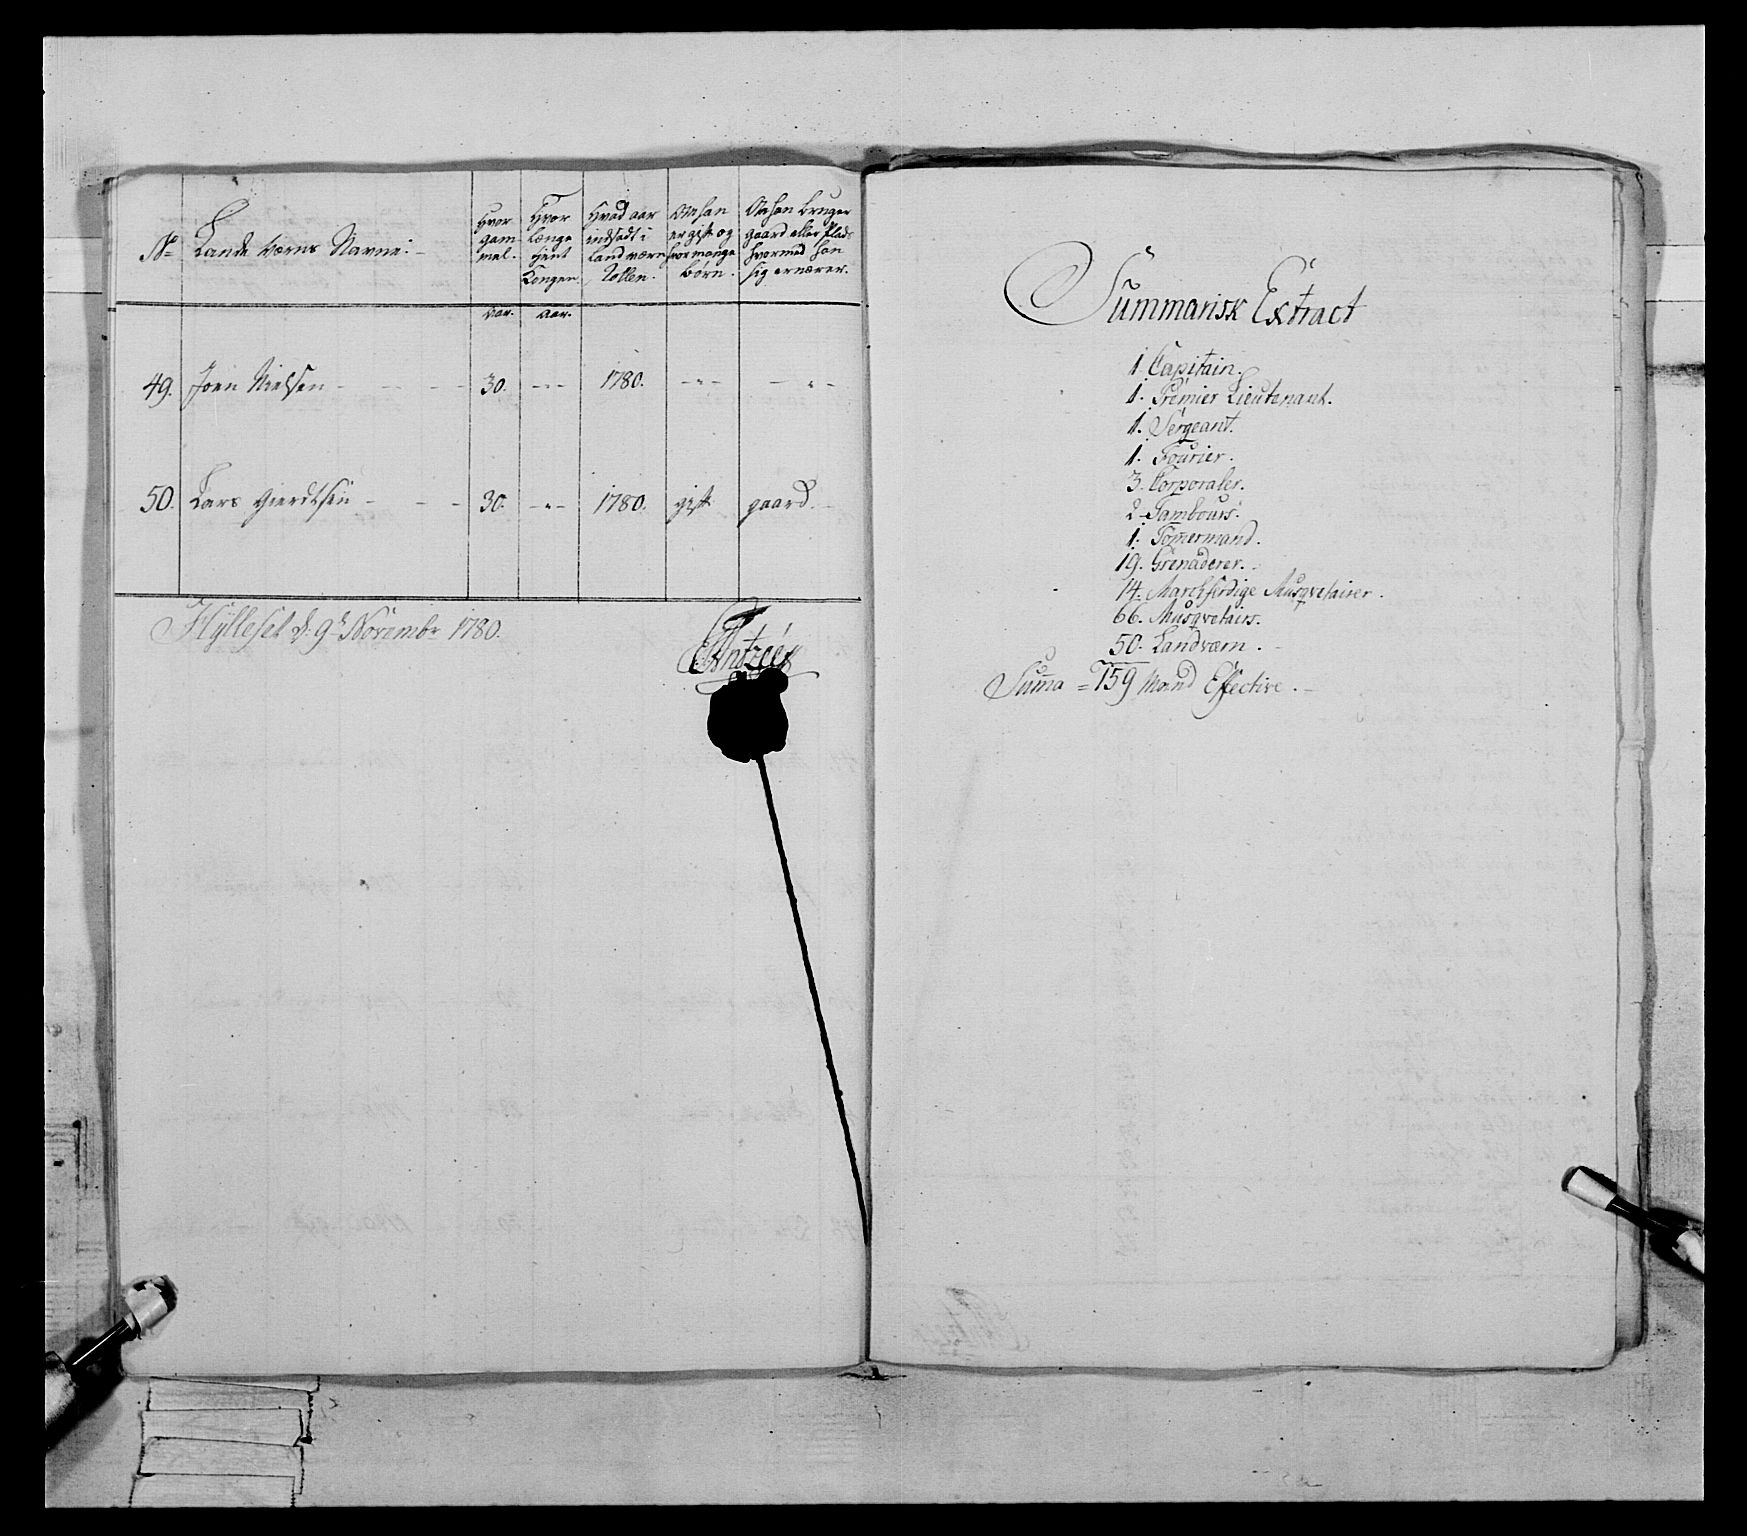 No Lande Værns Navne.
Hvor gam mel.
Hvor længe tient Kongen.
Hvad aar indsadt i Land værn Rollen.
Om han er gift og hvor mange børn.
Om han bruger gaard eller Plads hvormed han sig ernærer.
aar. aar.
49. Joen Nielsen - - - - 30. - " - 1780. - " - - " -
50. Lars Gierdtsen - - - 30. - " - 1780. gift gaard.
Hyllesel d: 9de Novembr 1780.
Summarisk Extract
1. Capitain.
1. Premier Lieutenant.
1. Sergeant.
1. Fourier.
3. Corporaler.
2. Tambours.
1. Tömermand.
19. Grenaderer.
14. Marchfærdige Musqvetairer.
66. Musqvetairs.
50. Landværn.
Suma = 159 Mand Effective.